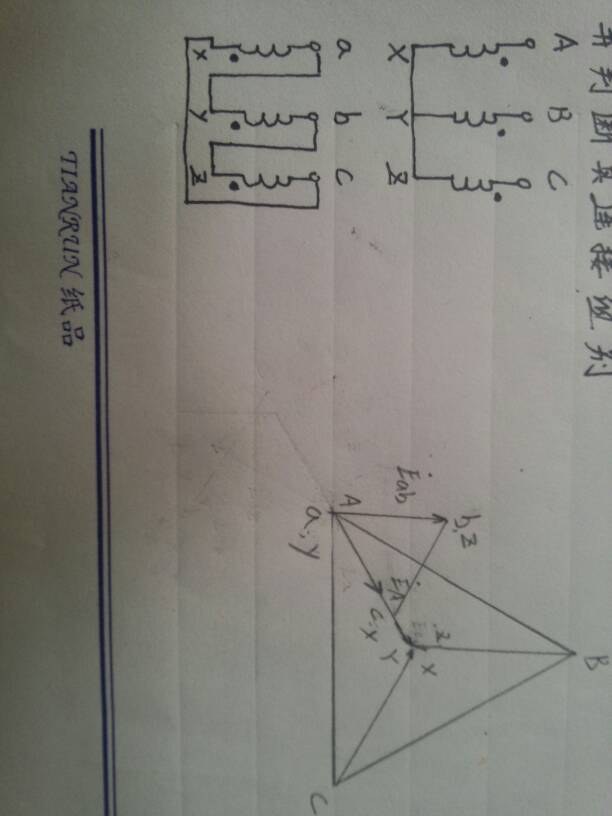 并判断其连接组别
A B C
X Y Z
a b c
x y z
B
b,z
Ėab
ĖA
z
X
Y
c,x
A
a,y
C
TIANRUN 纸品